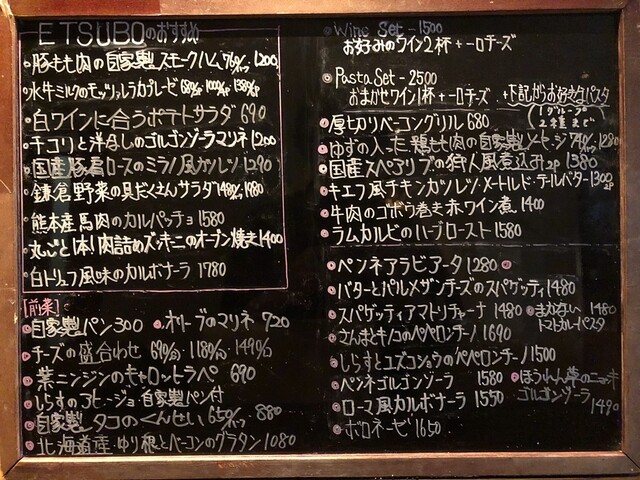 ETSUBOのおすすめ
豚もも肉の自家製スモークハム 1200
水牛ミルクのモッツァレラカプレーゼ
白ワインに合うポテトサラダ 690
チコリと洋なしのゴルゴンゾーラマリネ 1200
国産豚肩ロースのミラノ風カツレツ 1290
鎌倉野菜の具だくさんサラダ 1480
熊本産馬肉のカルパッチョ 1580
丸ごと1本!肉詰めズッキーニのオーブン焼き 1400
白トリュフ風味のカルボナーラ 1780
[前菜]
自家製パン 300 オリーブのマリネ 720
チーズの盛合わせ
葉ニンジンのキャロットラペ 690
しらすのアヒージョ 自家製パン付
自家製タコのくんせい 880
北海道産ゆり根とベーコンのグラタン 1080
Wine Set - 1500
お好みのワイン2杯+一口チーズ
Pasta Set - 2500
おまかせワイン1杯+一口チーズ+下記からお好きなパスタ
(1グループ2種まで)
厚切りベーコングリル 680
ゆずの入った鶏もも肉の自家製ソーセージ 1280
国産スペアリブの狩人風煮込み 2P 1380
キエフ風チキンカツレツ メートルド・テルバター 1300
牛肉のゴボウ巻き赤ワイン煮 1400
ラムカルビのハーブロースト 1580
ペンネアラビアータ 1280
バターとパルメザンチーズのスパゲッティ 1480
スパゲッティアマトリチャーナ 1480 まかない トマトカレーパスタ 1480
さんまとキノコのペペロンチーノ 1690
しらすとユズコショウのペペロンチーノ 1500
ペンネゴルゴンゾーラ 1580 ほうれん草のニョッキ ゴルゴンゾーラ 1490
ローマ風カルボナーラ 1550
ボロネーゼ 1650